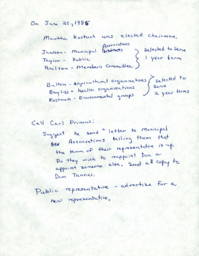 On June 25, 1985
Martha Kostuch was elected chairman.
Associations
Jackson - Municipal
Taylor - Public
Harrison - Members Committee
Selected to serve
1 year term
Bulton - agricultural organizations
Bayliss - health organizations
Kostuch - Environmental groups
Selected to
serve
2 year terms
Call Carl Primus:
Suggest he send a letter to Municipal
Associations telling them that
the term of their representative is up.
Do they wish to reappoint him or
appoint someone else. Send a copy to
Dian
Public representative - advertise for a
new representative.